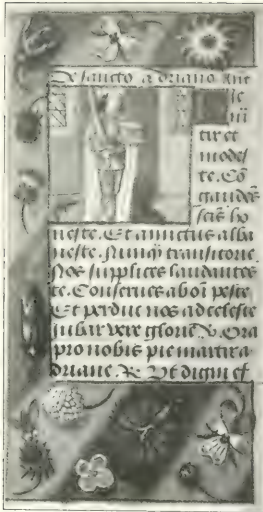 De sancto adriano Ant
tir et
modes
te. Cō
gaudēs
scīs ho
neste. Et amictus alba
veste. Nunq̄ transitorie.
Nos supplices laudantes
te. Conserues ab oī peste
Et perduc nos ad celeste
iubar vere glorie V. Ora
pro nobis pie martir a
driane. R. Vt digni ef